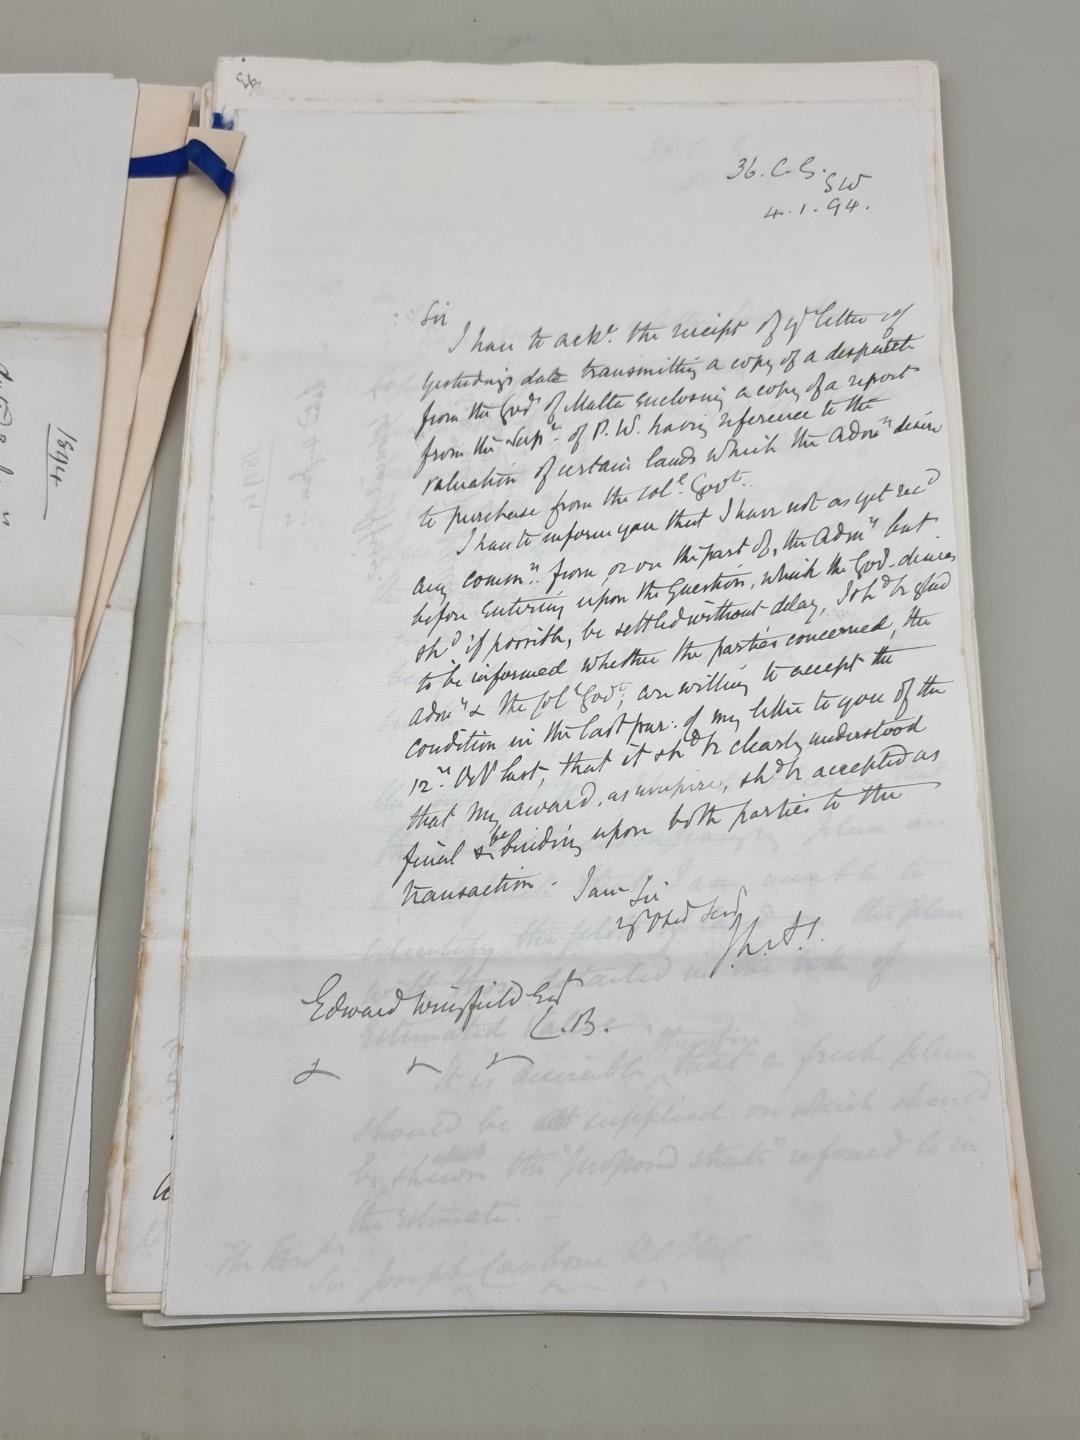 93
36. C. G.
SW
4. 1. 94.
Sir
I have to ackᵉ. the receipt of yʳ letter of
yesterday's date transmitting a copy of a despatch
from the Govʳ of Malta enclosing a copy of a report
from the Supᵗ. of P. W. having reference to the
valuation of certain lands which the Admⁿ desire
to purchase from the Colˡ. Govᵗ.
I have to inform you that I have not as yet recᵈ
any commⁿ. from, or on the part of, the Admⁿ but
before entering upon the question, which the Govʳ desires
shᵈ if possible, be settled without delay, I shᵈ be glad
to be informed whether the parties concerned, the
Admⁿ & the Colˡ Govᵗ, are willing to accept the
condition in the last par: of my letter to you of the
12ᵗʰ Octʳ last, that it shᵈ be clearly understood
that my award, as umpire, shᵈ be accepted as
final & be binding upon both parties to the
transaction.
I am Sir
yʳ Obed Serv
Edward Wingfield Esqʳ
C. B.
1894
It is desirable that a fresh plan
should be supplied on which should
be shewn the "proposed streets" referred to in
the Estimate.
The Honble
Sir Joseph Carbone